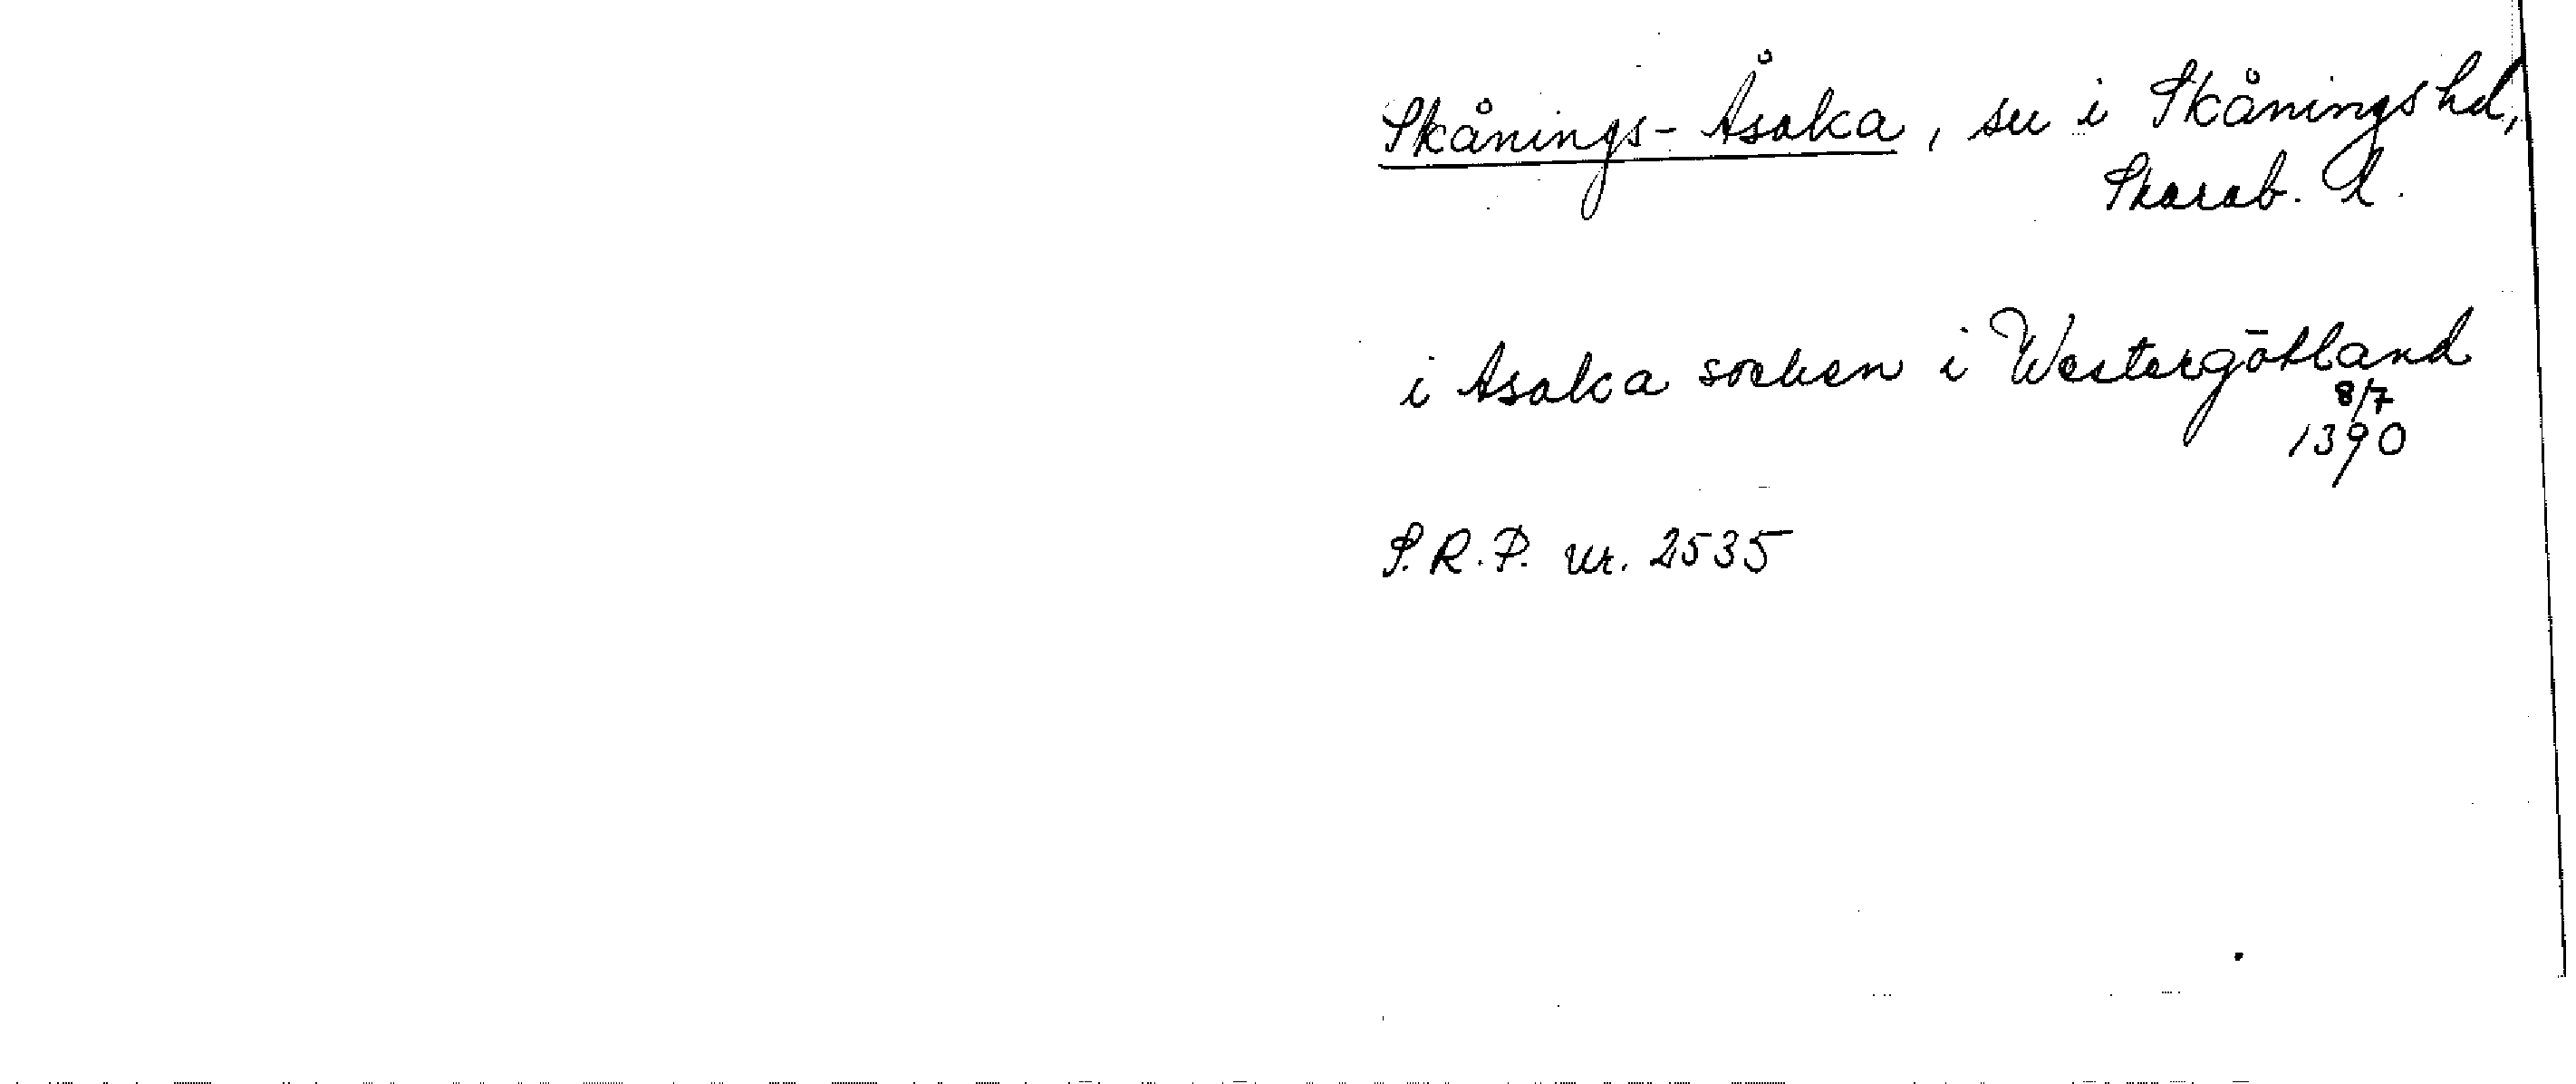 Skånings-Åsaka, sn i Skånings hd,
Skarab. l.
i Asaka socken i Westergötland
8/7
1390
S.R.P. nr. 2535